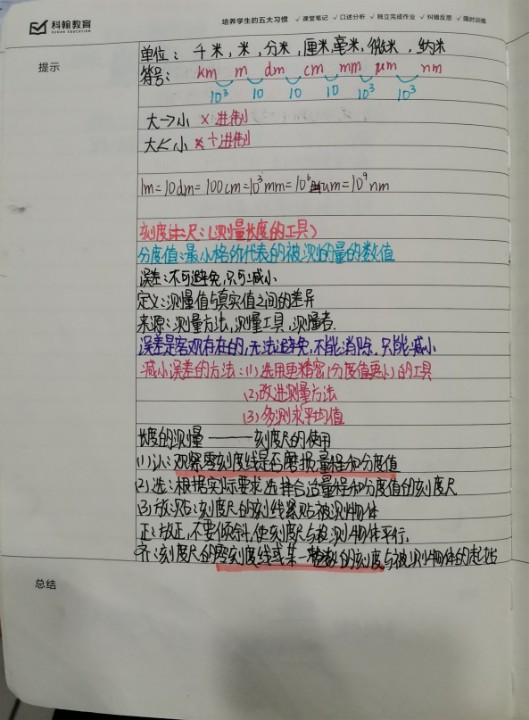 科翰教育
KEHAN EDUCATION
培养学生的五大习惯 ✓ 课堂笔记 ✓ 口述分析 ✓ 独立完成作业 ✓ 纠错反思 ✓ 限时训练
提示
单位：千米，米，分米，厘米，毫米，微米，纳米
符号： km m dm cm mm μm nm
10³ 10 10 10 10³ 10³
大→小 × 进制
大<小 ÷进制
1m=10dm=100cm=10³mm=10⁶um=10⁹nm
刻度尺：(测量长度的工具)
分度值：最小格所代表的被测的量的数值
误差：不可避免，只可减小
定义：测量值与真实值之间的差异
来源：测量方法，测量工具，测量者.
误差是客观存在的，无法避免，不能消除，只能减小
减小误差的方法：(1)选用更精密(分度值更小)的工具
(2)改进测量方法
(3)多测求平均值
长度的测量——刻度尺的使用
(1)认：观察零刻度线是否磨损，量程和分度值
(2)选：根据实际要求选择合适量程和分度值的刻度尺
(3)放：贴：刻度尺的刻线紧贴被测物体
正：放正，不要倾斜，使刻度尺与被测物体平行.
齐：刻度尺的零刻度线或某一整数的刻度与被测物体的起始
总结